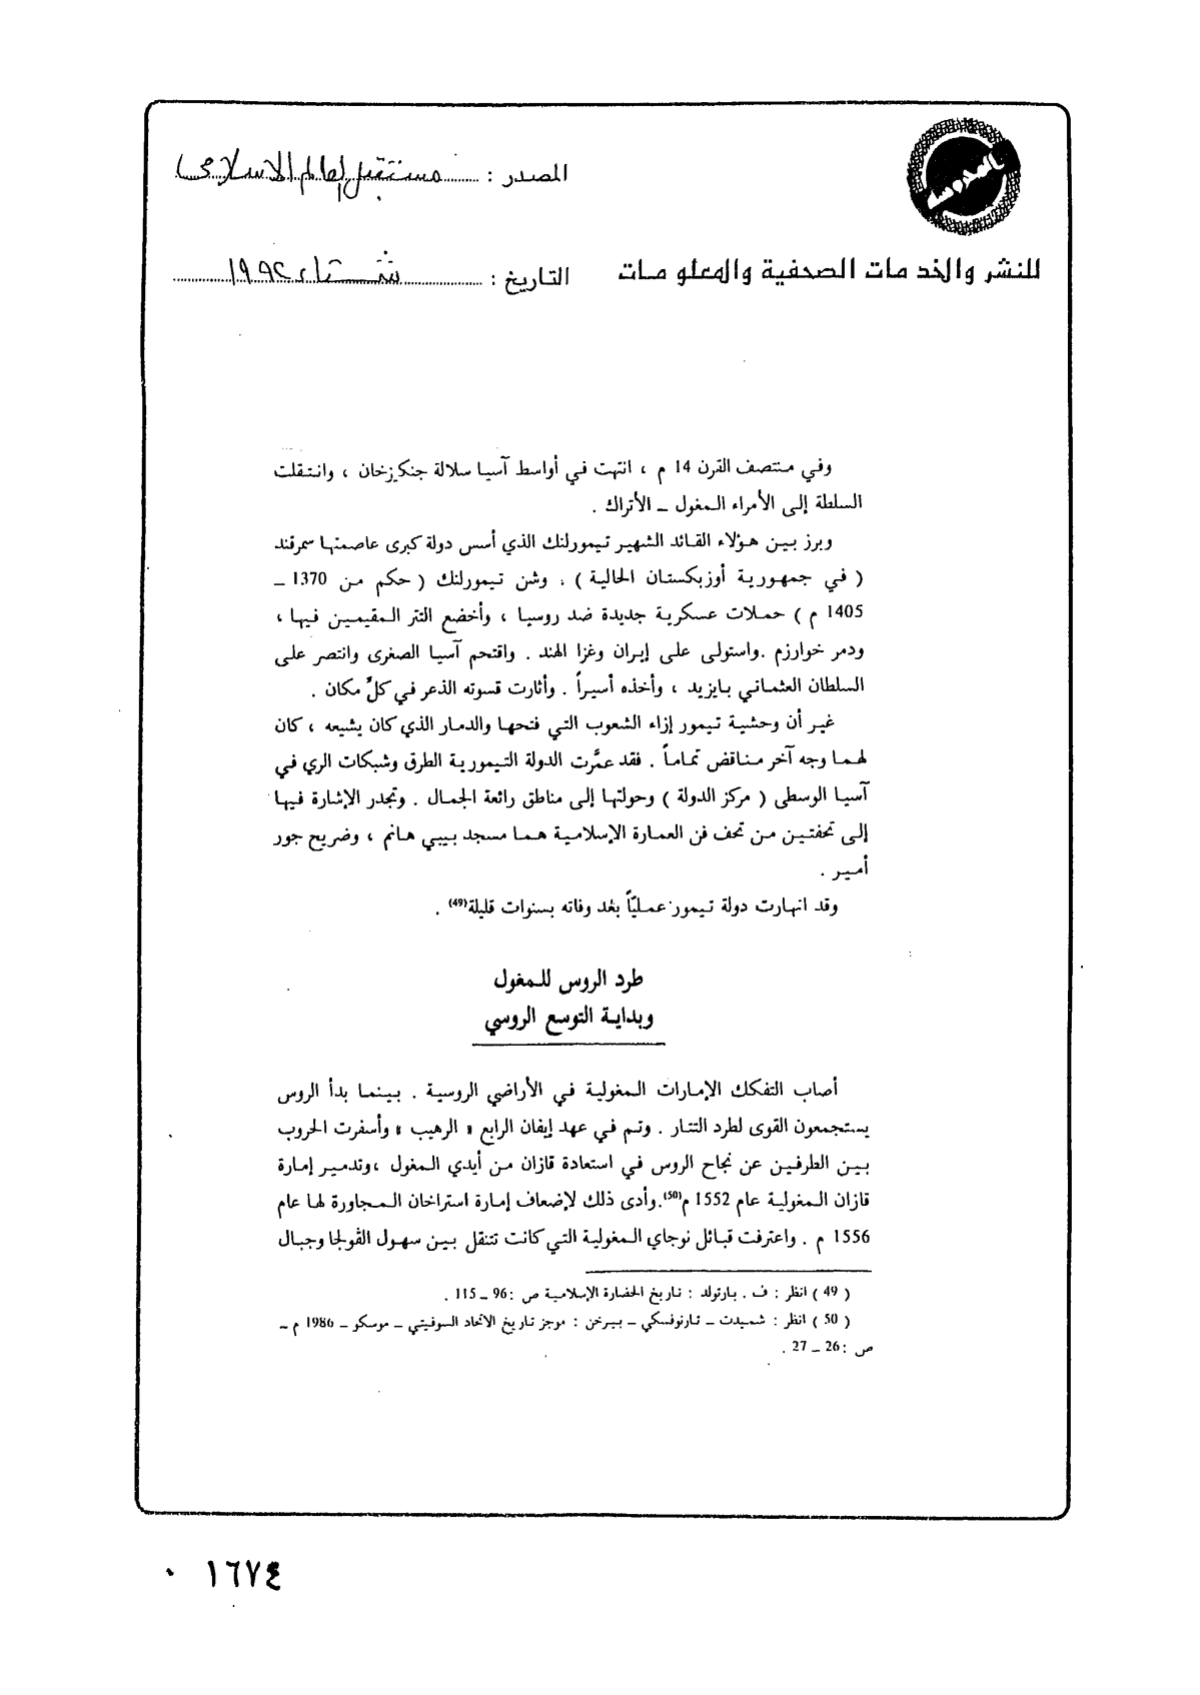 المصدر : مستقبل العالم الاسلامي
للنشر والخدمات الصحفية والمعلومات
التاريخ : شتاء ١٩٩٢
وفي منتصف القرن 14 م ، انتهت في أواسط آسيا سلالة جنكيزخان ، وانتقلت
السلطة إلى الأمراء المغول ــ الأتراك .
وبرز بين هؤلاء القائد الشهير تيمورلنك الذي أسس دولة كبرى عاصمتها سمرقند
( في جمهورية أوزبكستان الحالية ) ، وشن تيمورلنك ( حكم من 1370 ــ
1405 م ) حملات عسكرية جديدة ضد روسيا ، وأخضع التتر المقيمين فيها ،
ودمر خوارزم .واستولى على إيران وغزا الهند . واقتحم آسيا الصغرى وانتصر على
السلطان العثماني بايزيد ، وأخذه أسيراً . وأثارت قسوته الذعر في كلِّ مكان .
غير أن وحشية تيمور إزاء الشعوب التي فتحها والدمار الذي كان يشيعه ، كان
لهما وجه آخر مناقض تماماً . فقد عمَّرت الدولة التيمورية الطرق وشبكات الري في
آسيا الوسطى ( مركز الدولة ) وحولتها إلى مناطق رائعة الجمال . وتجدر الإشارة فيها
إلى تحفتين من تحف فن العمارة الإسلامية هما مسجد بيبي هانم ، وضريح جور
أمير .
وقد انهارت دولة تيمور عمليّاً بعْد وفاته بسنوات قليلة(49) .
طرد الروس للمغول
وبداية التوسع الروسي
أصاب التفكك الإمارات المغولية في الأراضي الروسية . بينما بدأ الروس
يستجمعون القوى لطرد التتار . وتم في عهد إيفان الرابع « الرهيب » وأسفرت الحروب
بين الطرفين عن نجاح الروس في استعادة قازان من أيدي المغول ،وتدمير إمارة
قازان المغولية عام 1552 م(50).وأدى ذلك لإضعاف إمارة استراخان المجاورة لها عام
1556 م . واعترفت قبائل نوجاي المغولية التي كانت تتنقل بين سهول الڤولجا وجبال
( 49 ) انظر : ف . بارتولد : تاريخ الحضارة الإسلامية ص :96 ــ 115 .
( 50 ) انظر : شميدت ــ تارنوفسكي ــ بيرخن : موجز تاريخ الاتحاد السوفيتي ــ موسكو ــ 1986 م ــ
ص :26 ــ 27 .
١٦٧٤